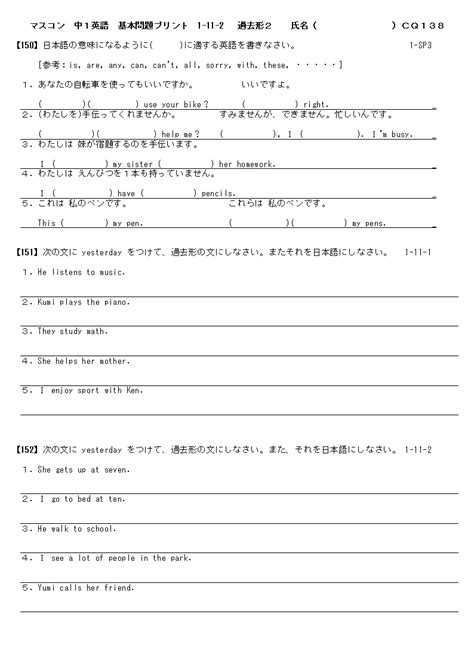 マスコン　中１英語　基本問題プリント　1-11-2　過去形２　氏名（　　　　　　　）ＣＱ１３８
【150】日本語の意味になるように(　　　)に適する英語を書きなさい。　1-SP3
[参考：is, are, any, can, can't, all, sorry, with, these, ・・・・・]
１．あなたの自転車を使ってもいいですか。　いいですよ。
(　　　)(　　　) use your bike？　(　　　) right.
２．(わたしを)手伝ってくれませんか。　すみませんが、できません。忙しいんです。
(　　　)(　　　) help me？　(　　　), I (　　　), I 'm busy.
３．わたしは 妹が宿題するのを手伝います。
I (　　　) my sister (　　　) her homework.
４．わたしは えんぴつを１本も持っていません。
I (　　　) have (　　　) pencils.
５．これは 私のペンです。　これらは 私のペンです。
This (　　　) my pen.　(　　　)(　　　) my pens.
【151】次の文に yesterday をつけて、過去形の文にしなさい。またそれを日本語にしなさい。　1-11-1
１．He listens to music.
２．Kumi plays the piano.
３．They study math.
４．She helps her mother.
５．I enjoy sport with Ken.
【152】次の文に yesterday をつけて、過去形の文にしなさい。また、それを日本語にしなさい。 1-11-2
１．She gets up at seven.
２．I go to bed at ten.
３．He walk to school.
４．I see a lot of people in the park.
５．Yumi calls her friend.